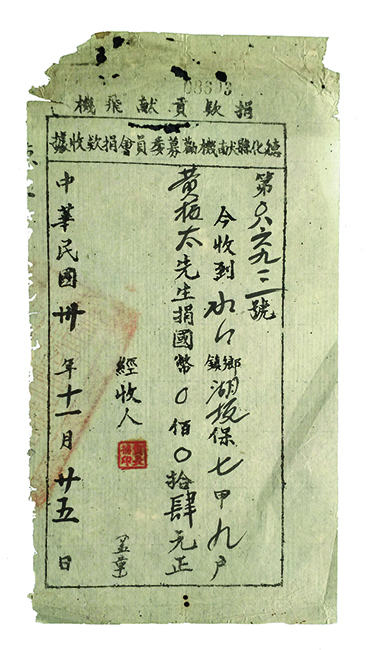 捐欵貢獻飛機
德化縣獻機勸募委員會捐欵收據
第號
今收到水口鄉鎮湖坂保七甲九戶
黃太先生捐國幣0佰0拾肆元正
經收人 蓋章
中華民國卅年十一月廿五日